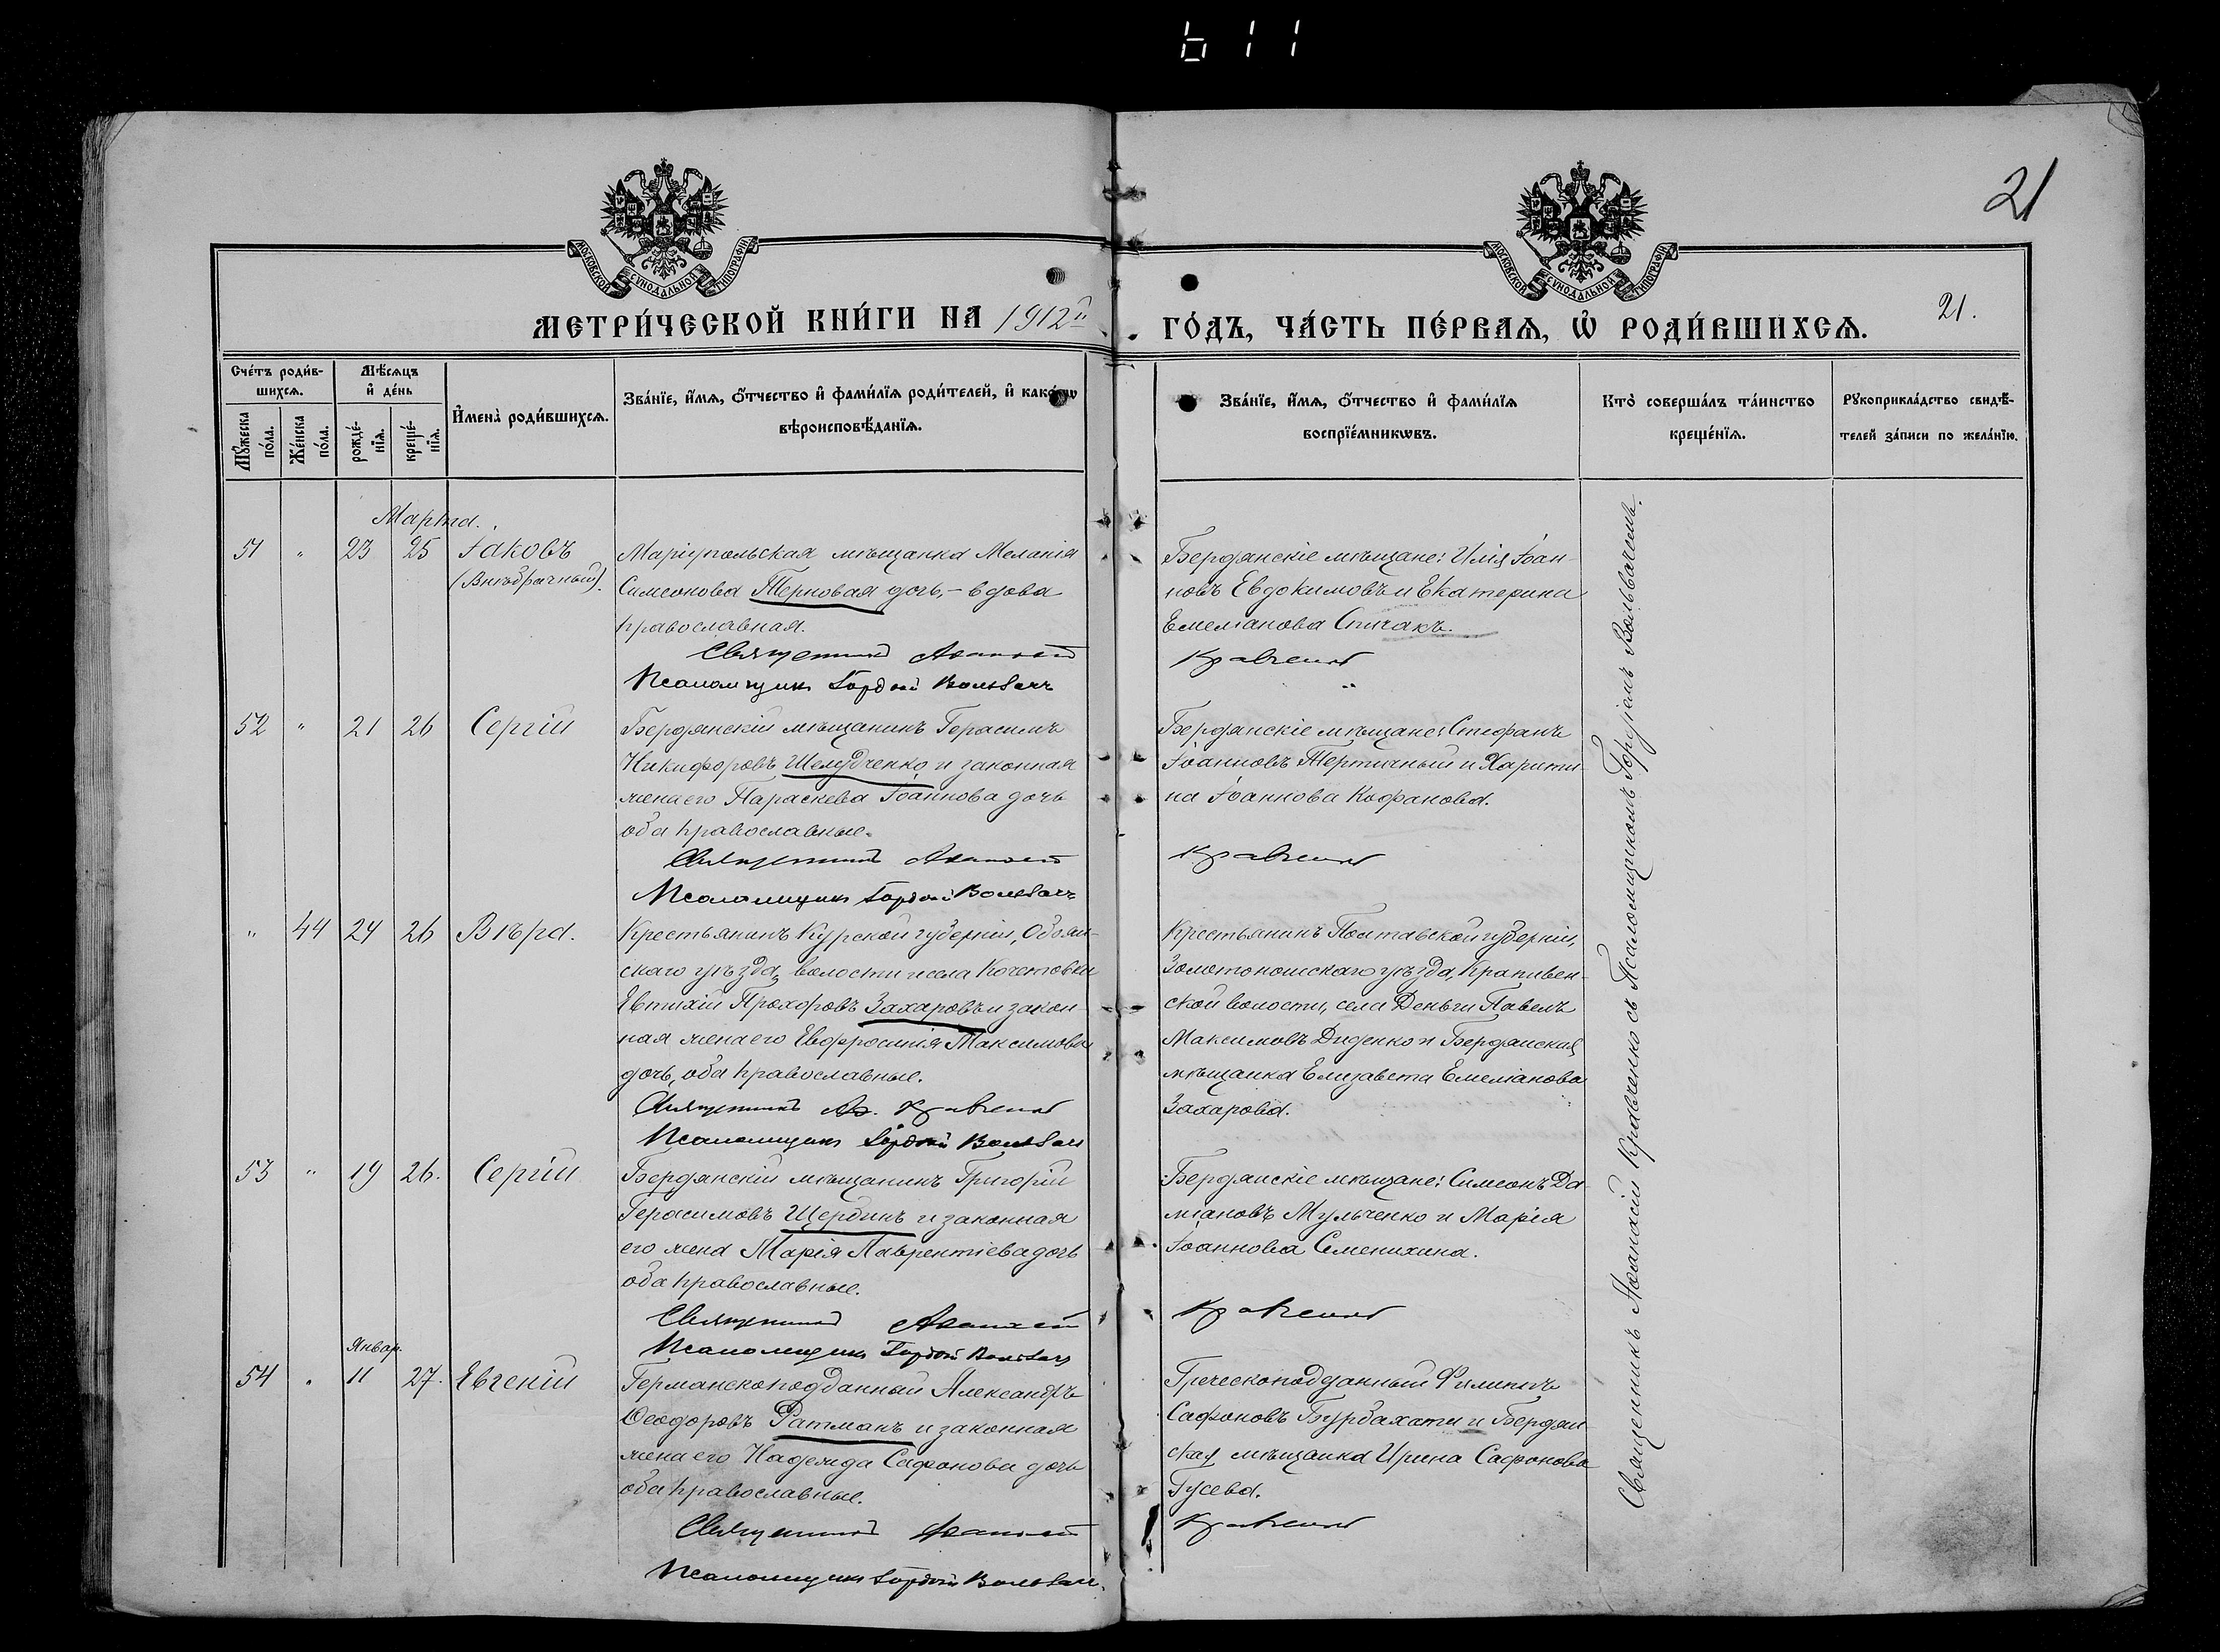 611
21
МОСКОВСКОЙ СѴНОДАЛЬНОЙ ТИПОГРАФІИ
МОСКОВСКОЙ СѴНОДАЛЬНОЙ ТИПОГРАФІИ
МЕТРИ́ЧЕСКОЙ КНИ́ГИ НА 1912й
ГО́ДЪ, ЧА́СТЬ ПЕ́РВАѦ, Ѡ҆ РОДИ́ВШИХСѦ.
21.
Сче́тъ роди́в-
шихсѧ.
Мѣ́сѧцъ
и҆ де́нь
Мꙋ́жеска
по́ла.
Же́нска
по́ла.
рожде́-
нїѧ.
креще́-
нїѧ.
И҆мена̀ роди́вшихсѧ.
Зва́нїе, и҆́мѧ, ѻ҆́тчество и҆ фами́лїѧ роди́телей, и҆ како́гѡ
вѣроисповѣ́данїѧ.
Зва́нїе, и҆́мѧ, ѻ҆́тчество и҆ фами́лїѧ
воспрїе́мникѡвъ.
Кто̀ соверша́лъ та́инство
креще́нїѧ.
Рꙋкоприкла́дство свидѣ́-
телей за́писи по жела́нїю.
Марта.
51 " 23 25 Іаковъ
(Внѣбрачный).
Маріупольская мѣщанка Меланія
Симеонова Терновая дочь,- вдова
православная.
Священникъ Аѳанасій
Псаломщикъ Гордій Вольвачъ
Бердянскіе мѣщане: Илія Іоан-
новъ Евдокимовъ и Екатерина
Емеліанова Спичакъ.
Кравченко
52 " 21 26 Сергій
Бердянскій мѣщанинъ Герасимъ
Никифоровъ Шелудченко и законная
жена его Параскева Іоаннова дочь
оба православные.
Священникъ Аѳанасій
Псаломщикъ Гордій Вольвачъ
Бердянскіе мѣщане: Стефанъ
Іоанновъ Тертичный и Харити-
на Іоаннова Кофанова.
Кравченко
" 44 24 26 Вѣра.
Крестьянинъ Курской губерніи, Обоян-
скаго уѣзда, волости и села Кочетовки
Евтихій Прохоровъ Захаровъ и закон-
ная жена его Евфросинія Максимова
дочь, оба православные.
Священникъ Аѳ. Кравченко
Псаломщикъ Гордій Вольвачъ
Крестьянинъ Полтавской губерніи,
Золотоношскаго уѣзда, Крапивен-
ской волости, села Деньги Павелъ
Максимовъ Диденко и Бердянская
мѣщанка Елизавета Емеліанова
Захарова.
53 " 19 26. Сергій
Бердянскій мѣщанинъ Григорій
Герасимовъ Щербинъ и законная
его жена Марія Лаврентіева дочь
оба православные.
Священникъ Аѳанасій
Псаломщикъ Гордій Вольвачъ
Бердянскіе мѣщане: Симеонъ Да-
міановъ Мульченко и Марія
Іоаннова Семенихина.
Кравченко
Январ.
54 " 11 27. Евгеній
Германскоподданный Александръ
Ѳеодоровъ Ратманъ и законная
жена его Надежда Сафонова дочь
оба православные.
Священникъ Аѳанасій
Псаломщикъ Гордій Вольвачъ
Греческоподданный Филиппъ
Сафоновъ Бурбахати и Бердян
ская мѣщанка Ирина Сафонова
Гусева.
Кравченко
Священникъ Аѳанасій Кравченко съ Псаломщикомъ Гордіемъ Вольвачемъ.